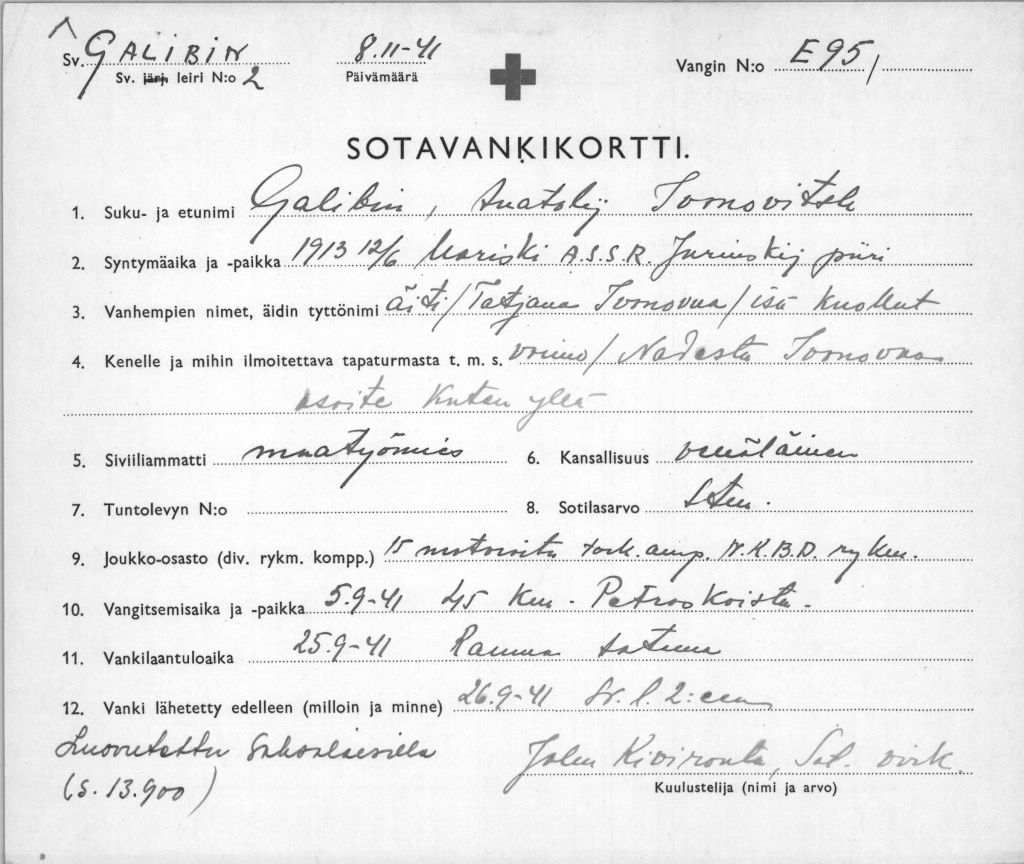 Sv. GALIBIN 8.11-41 Vangin N:o E95/
Sv. järj. leiri N:o 2 Päivämäärä
SOTAVANKIKORTTI.
1. Suku- ja etunimi Galibin, Anatolij Ivonovitsh
2. Syntymäaika ja -paikka 1913 12/6 Mariski A.S.S.R. Jurinskij piiri
3. Vanhempien nimet, äidin tyttönimi äiti/Tatjana Ivonovna/isä kuollut
4. Kenelle ja mihin ilmoitettava tapaturmasta t. m. s. vaimo/ Nadesta Ivonovna
osoite kuten yllä
5. Siviiliammatti maatyömies 6. Kansallisuus venäläinen
7. Tuntolevyn N:o 8. Sotilasarvo stm.
9. Joukko-osasto (div. rykm. kompp.) 15 motoroitu tark. amp. N.K.B.D. rykm.
10. Vangitsemisaika ja -paikka 5.9-41 45 km. Petroskoista.
11. Vankilaantuloaika 25.9-41 Rauma satama
12. Vanki lähetetty edelleen (milloin ja minne) 26.9-41 Sv. l. 2:een
Luovutettu Saksalaisille Kivironta, Sot. virk.
(S. 13.900) Kuulustelija (nimi ja arvo)